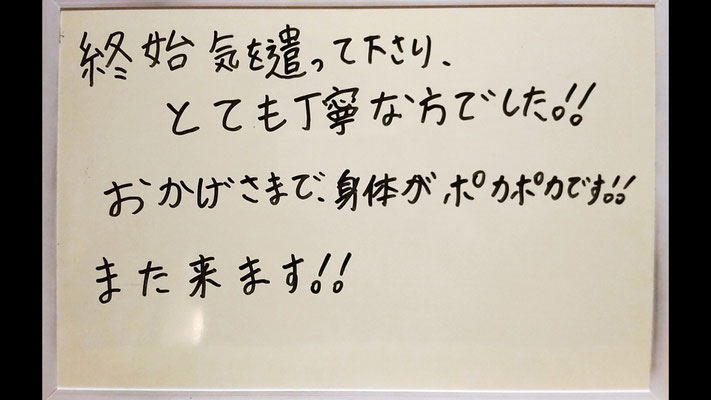 終始気を遣って下さり、
とても丁寧な方でした!!
おかげさまで、身体がポカポカです!!
また来ます!!